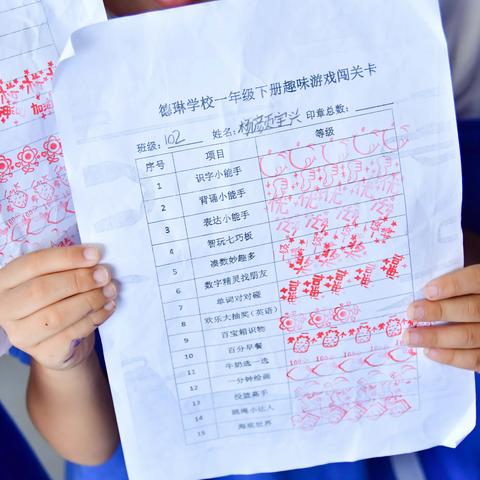 德琳学校一年级下册趣味游戏闯关卡
班级: 102 姓名: 印章总数:
序号 项目 等级
1 识字小能手
2 背诵小能手
3 表达小能手
4 智玩七巧板
5 凑数妙趣多
6 数字精灵找朋友
7 单词对对碰
8 欢乐大抽奖(英语)
9 百宝箱识物
10 百分早餐
11 牛奶选一选
12 一分钟绘画
13 投篮高手
14 跳绳小达人
15 海底世界